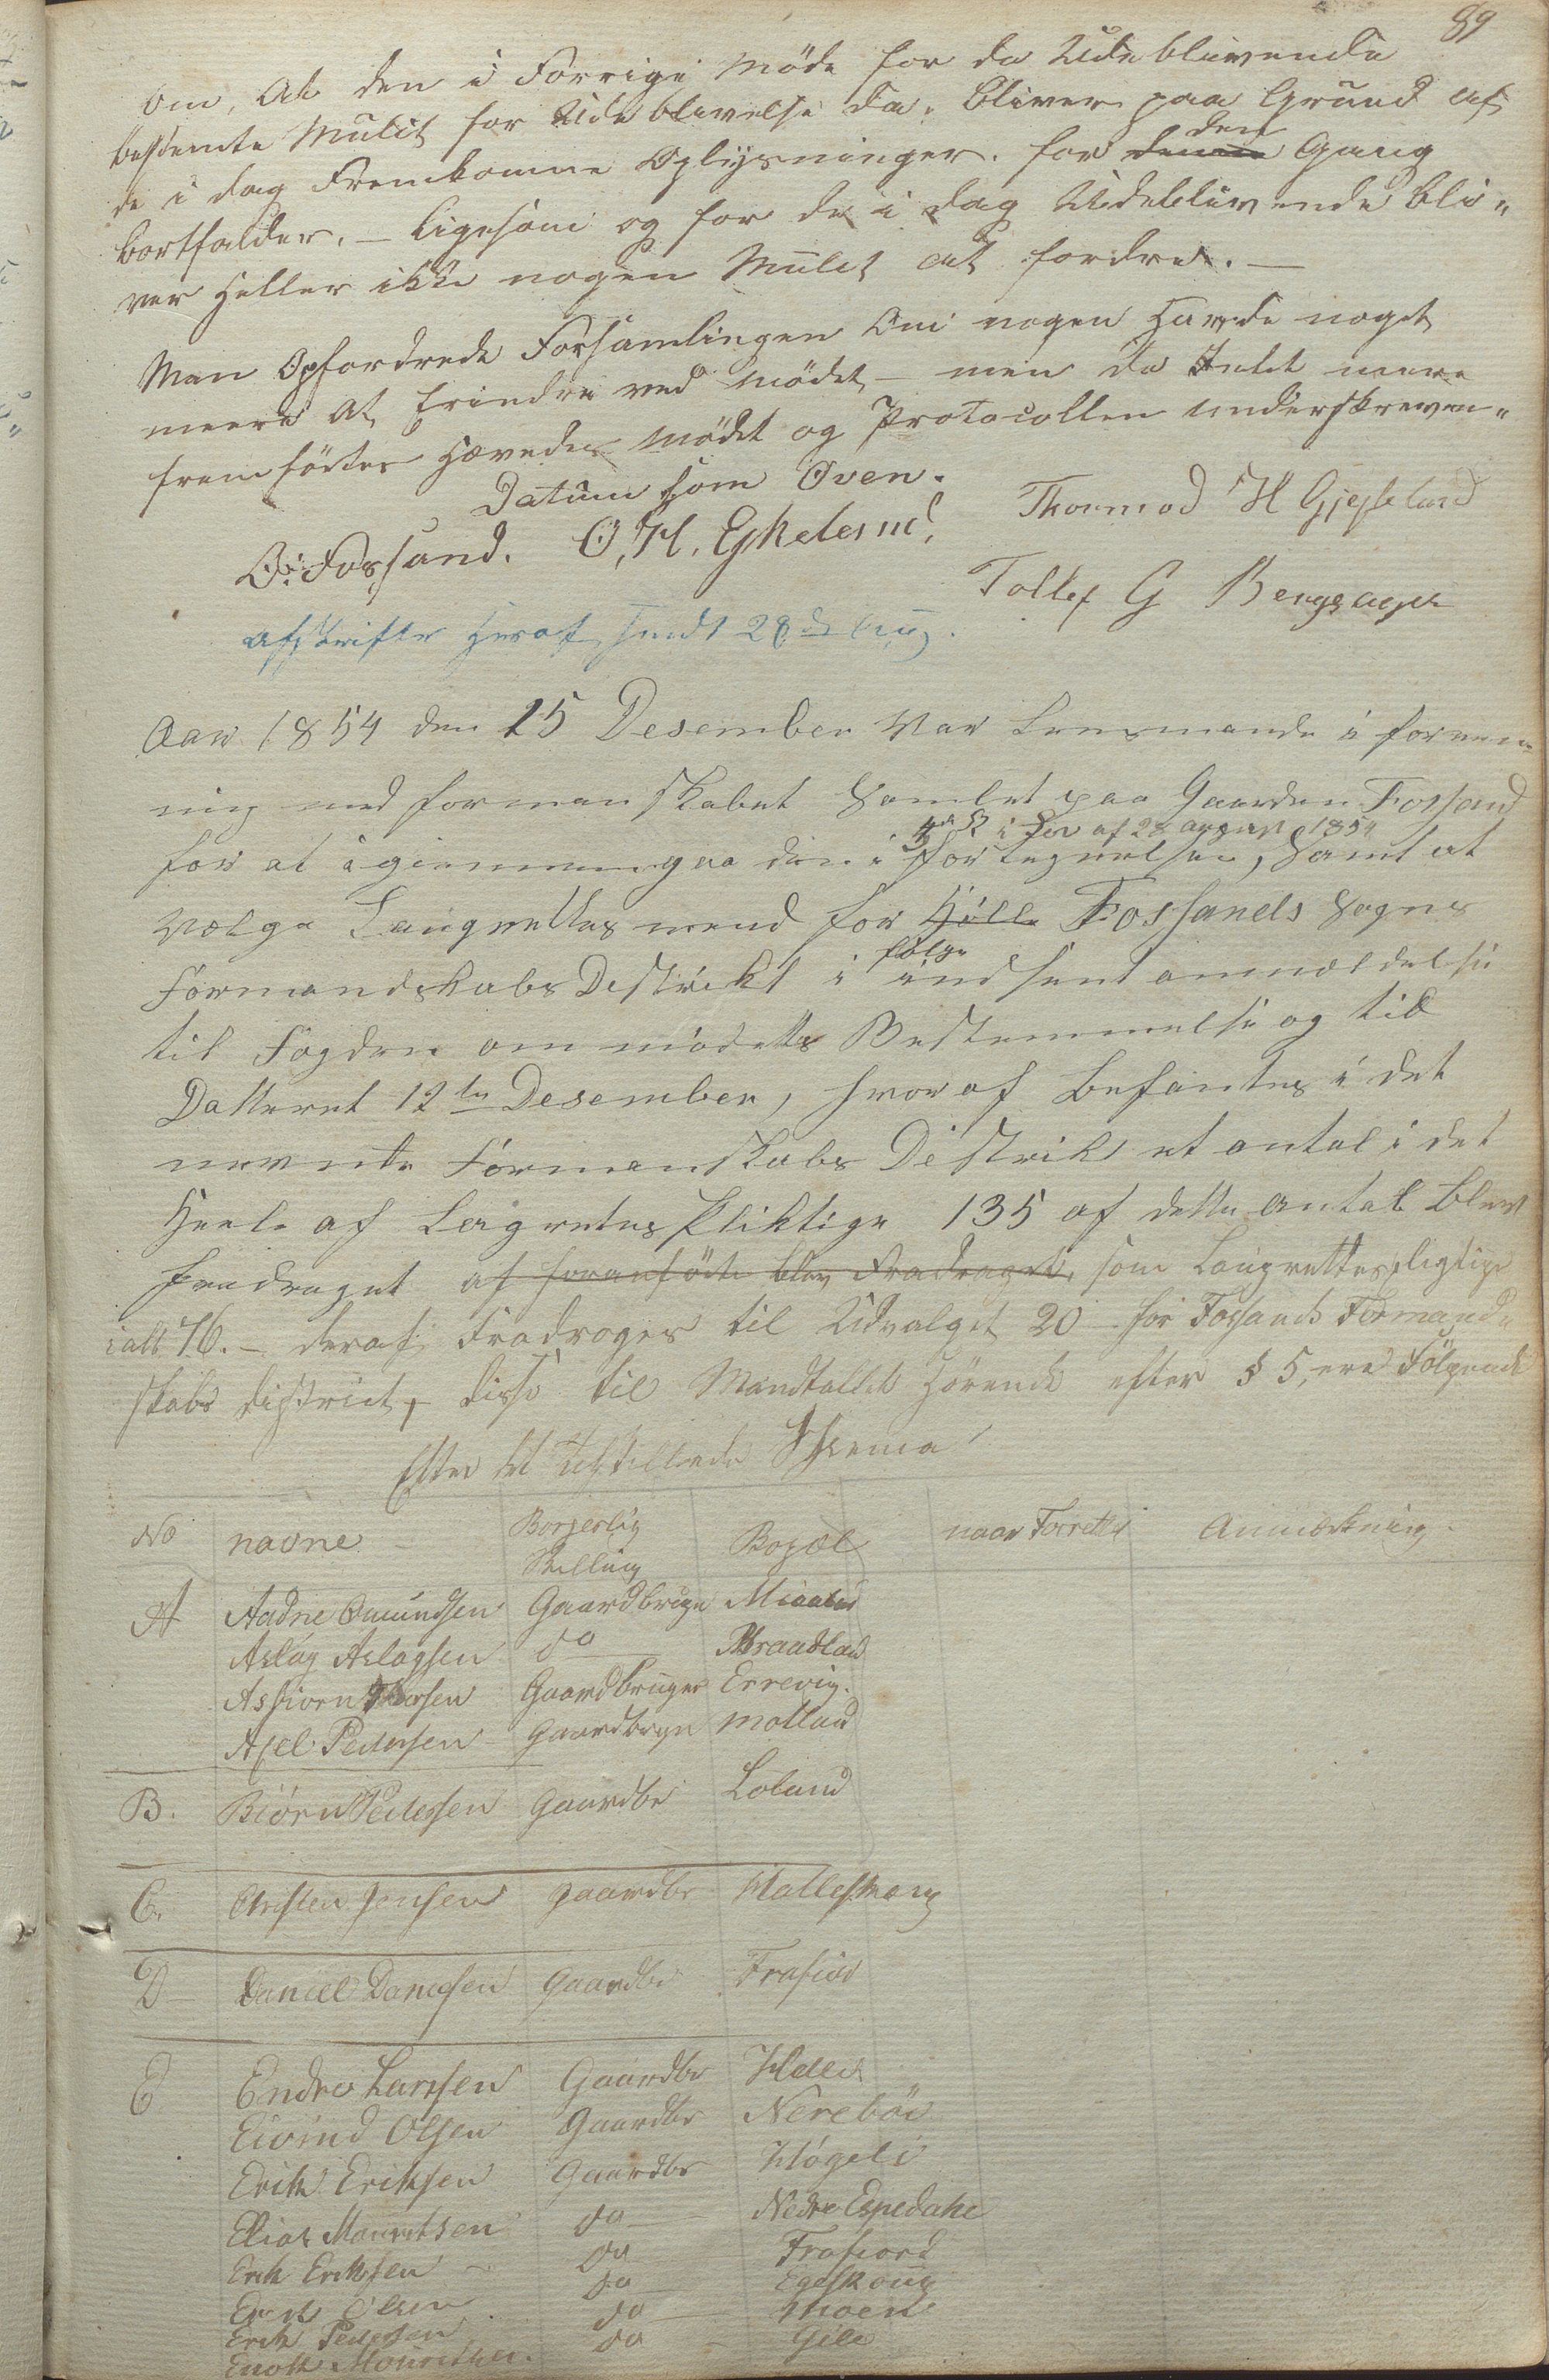 89
Om, At den i Forrige Møde for da Udeblivende
bestemte Mulct for Udeblivelse da. bliver paa Grund af
de i dag Fremkomne Oplysninger. for denne den Gang
bortfalder, — Ligesom og for de i dag Udeblivende bli„
ver Heller ikke nogen Mulct at fordre. —
Man Opfordrede Forsamlingen Om nogen Havde noget
meere At Erindre ved Mødet — men da Intet mere
fremførtes Hævedes Mødet og Protocollen underskreven„
Datum som Oven.
O: Fossand. O. H. Eskeland, Thormod H Gjesteland
Tollef G Bergeager
afskrifter Heraf sendt 28de Aug.
Aar 1854 den 15 Desember Var Lensmande i foreen„
ing med formanskabet Samlet paa Gaarden Fossand
for at igiennemgaa den i 4de § i Lov af 28 august 1854 fortegnelsen, Samt at
Vælge Laugrettesmend for Hölle Fossands Sogns
FormandskabsDistrikt i følge indsent anmældelse
til Fogden om mödetts Bestemmelse og til
Datteret 12te Desember, hvoraf Befantes i det
nevnte Formanskabs Distrikt et antal i det
Heele af Lagrettes Pliktige 135 af dette antal blev
fradraget af foranförte blev Fradraget, som Laugrettespligtige
ialt 76. — deraf Fradroges til Udvalget 20 for Fossands Formand„
skabs district, — disse til Mandtallet Hørende efter § 5, ere Følgende
Efter det Udstillede Schema
No navne Borgerlig Stilling Bopæl naar Forrettet Anmærkning
A Aadne Omundsen Gaardbruger
Aslag Aslagsen do Braadland
Asbiorn Gaardbruger Errevig.
Axel Pedersen Gaardbrger Molland
B. Biörn Pedersen Gaardbr Loland
C. Christen Jensen gaardbr Halleskaag
D Daniel Danielsen Gaardbr Frafiord
E Endre Larssen Gaardbr Helle
Eivind Olsen Gaardbr Nerebö
Erik Eriksen Gaardbr Högeli
Elias Mauritsen do Nedre Espedahl
Erik Eriksen do Frafiord
Erik Olsen do Egeskoug
Erik Pedersen do Moen
Enok Mouritsen. do Gilie